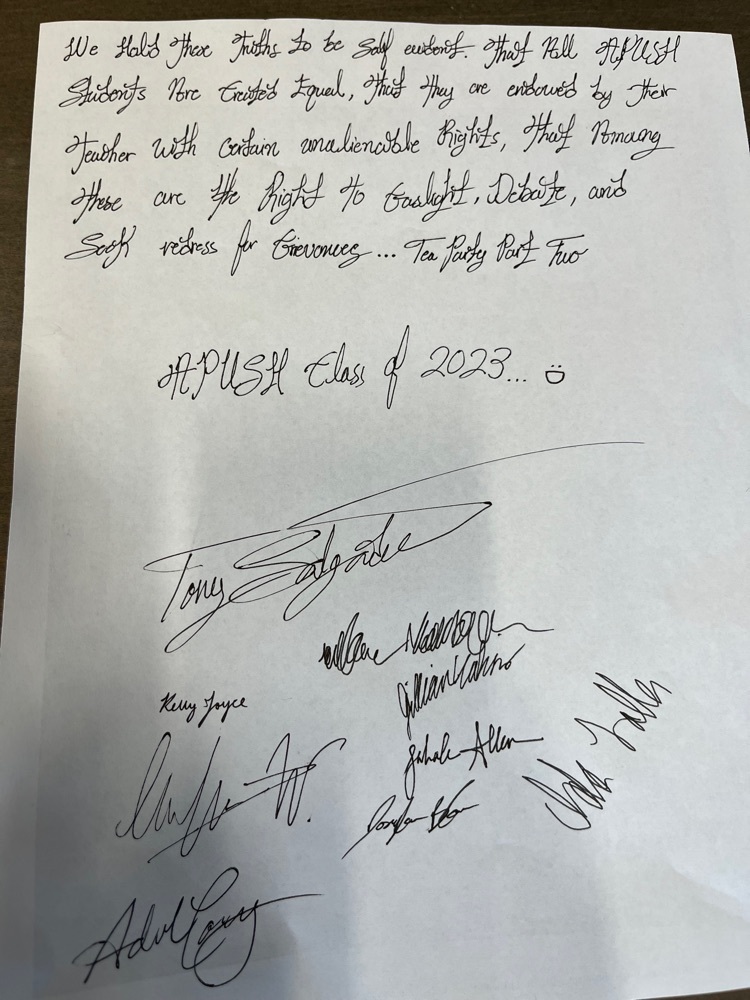 We Hold These Truths to be Self evident. That All APUSH
Students Are Created Equal, that they are endowed by their
Teacher with certain unalienable Rights, that Amoung
these are the Right to Gaslight, Debate, and
Seek redress for Grievences... Tea Party Part Two
APUSH Class of 2023... :D
Tony Salgado
Kelly Joyce
Jillian
Allen